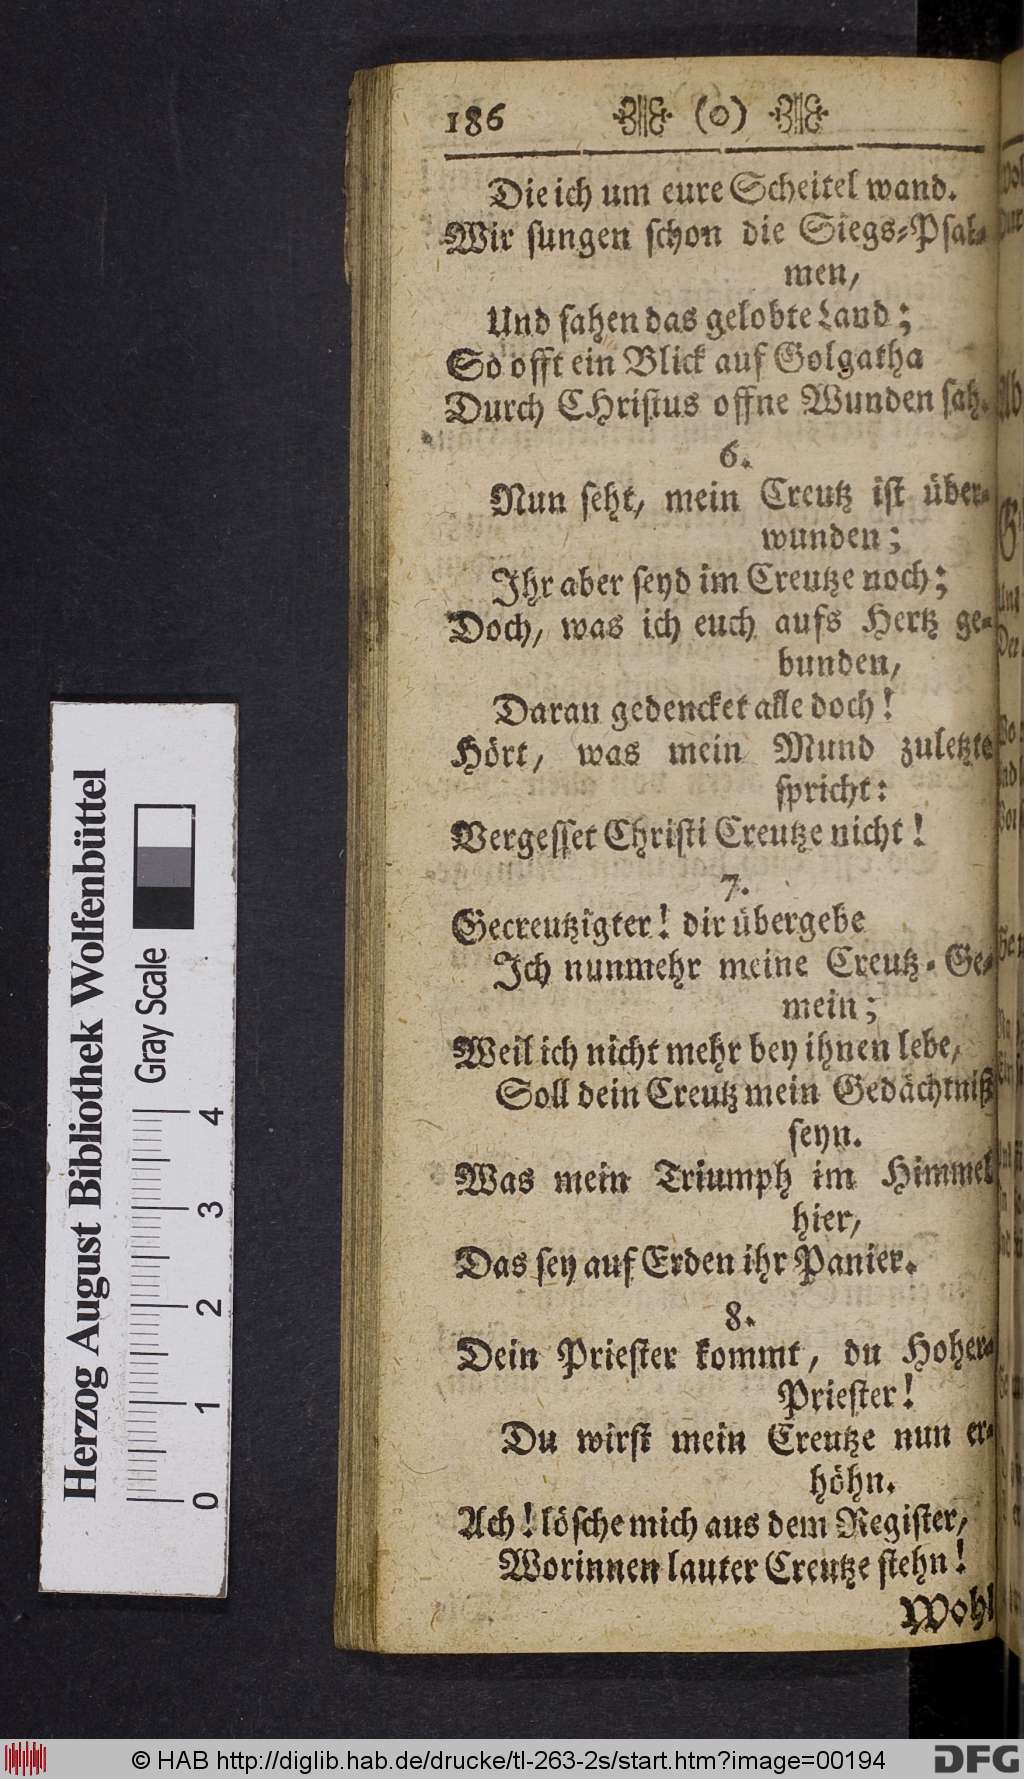 186 (o)
Die ich um eure Scheitel wand.
Wir sungen schon die Siegs-Psal-
men,
Und sahen das gelobte Land;
So offt ein Blick auf Golgatha
Durch CHristus offne Wunden sah.
6.
Nun seht, mein Creutz ist über-
wunden;
Ihr aber seyd im Creutze noch;
Doch, was ich euch aufs Hertz ge-
bunden,
Daran gedencket alle doch!
Hört, was mein Mund zuletzte
spricht:
Vergesset Christi Creutze nicht!
7.
Gecreutzigter! dir übergebe
Ich nunmehr meine Creutz-Ge-
mein;
Weil ich nicht mehr bey ihnen lebe,
Soll dein Creutz mein Gedächtniß
seyn.
Was mein Triumph im Himmel
hier,
Das sey auf Erden ihr Panier.
8.
Dein Priester kommt, du Hoher-
Priester!
Du wirst mein Creutze nun er-
höhn.
Ach! lösche mich aus dem Register,
Worinnen lauter Creutze stehn!
Wohl
Herzog August Bibliothek Wolfenbüttel
Gray Scale
0 1 2 3 4
© HAB http://diglib.hab.de/drucke/tl-263-2s/start.htm?image=00194
DFG